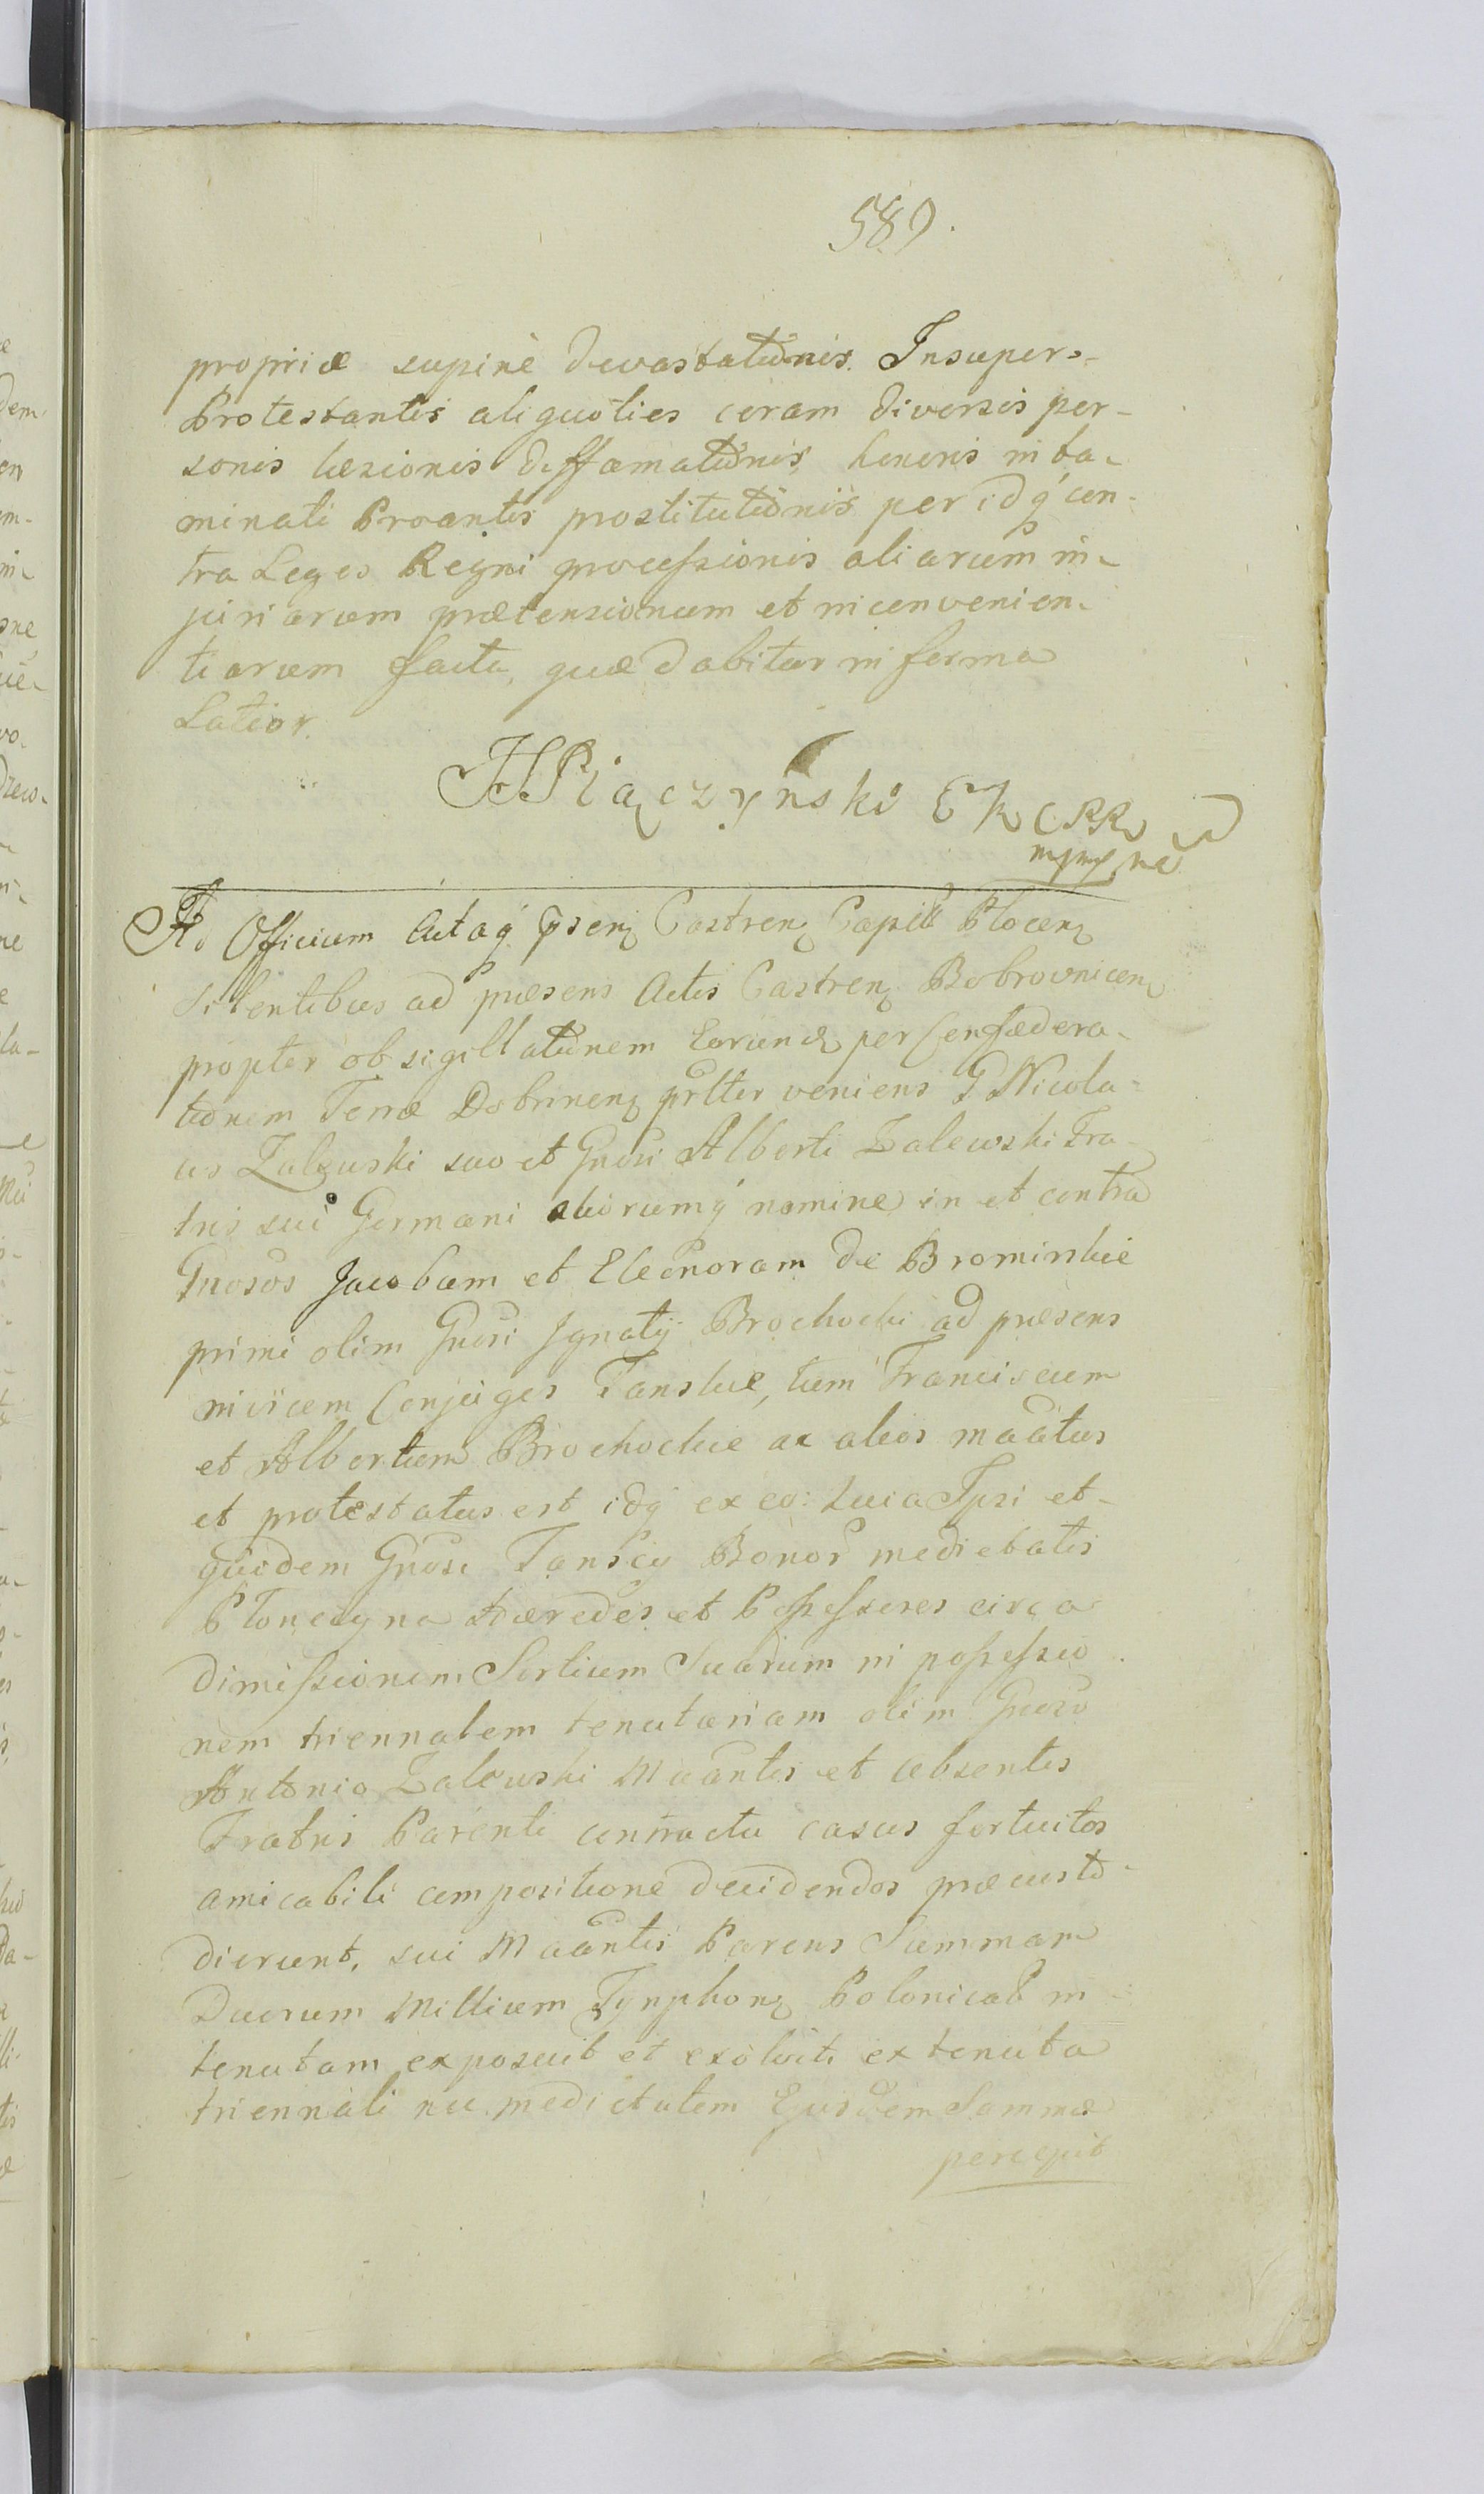 589.
propriæ supinè devastationis. Insuper
Protestantis aliquoties coram diversis per-
sonis læsionis diffamationis, honoris inta-
minati Proantis prostitutionis per idq́ con-
tra Leges Regni processionis aliarum in-
juriarum prætensionum et inconvenien-
tiarum facta, quæ dabitur in forma
Latior.
Ad Officium Actaq́ Castren Capitl Plocen
silentibus ad præsens Actis Castren Bobrovnicen
propter obsigillationem Eorund per Confœdera-
tionem Terræ Dobrinen prltter veniens G Nicola-
us Zalewski suo et Gnosi Alberti Zalewski Fra-
tris sui Germani aliorumq́ nomine in et contra
Gnosos Jacobum et Eleonoram de Brominskie
primi olim Gnosi Ignatij Brochocki ad præsens
invicem Conjuges Tanskie, tum Franciscum
et Albertum Brochockie ac alios maatus
et protestatus est idq́ ex eo: quia Ipsi et-
quidem Gnosi Tanscy Bonor medietatis
Płonczyna Hæredes et Possessores circa
dimissionem Sortium Suarum in possessio
nem triennalem tenutariam olim Gnoso
Antonio Zalewski Maantis et absentis
Fratris Parenti contractu casus fortuitos
amicabili compositione decidendos præcusto-
dierunt, sui Maantis Parens Summam
Duorum Millium Tynphon Polonical in
tenutam exposuit et exolvit ex tenuta
triennali nec medietatem Ejusdem Summæ
percepit